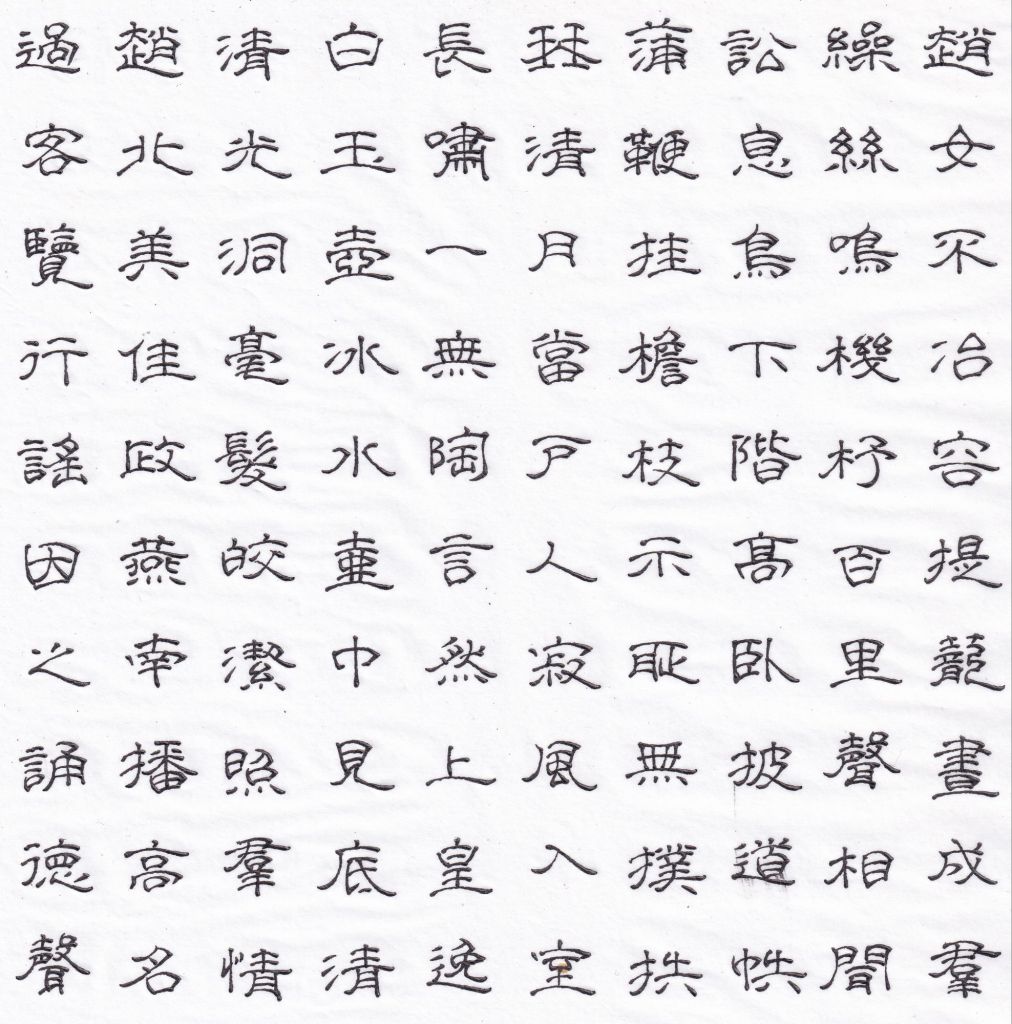 趙女不冶容提籠晝成羣
繰絲鳴機杼百里聲相聞
訟息鳥下階髙臥披道帙
蒲鞭挂檐枝示耻無撲抶
珡清月當戶人寂風入室
長嘯一無言陶然上皇逸
白玉壺冰水壺中見底清
清光洞毫髮皎潔照羣情
趙北美佳政燕南播高名
過客覽行謠因之誦德聲